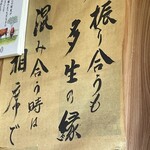 振り合うも
多生の縁
混み合う時は
相席で